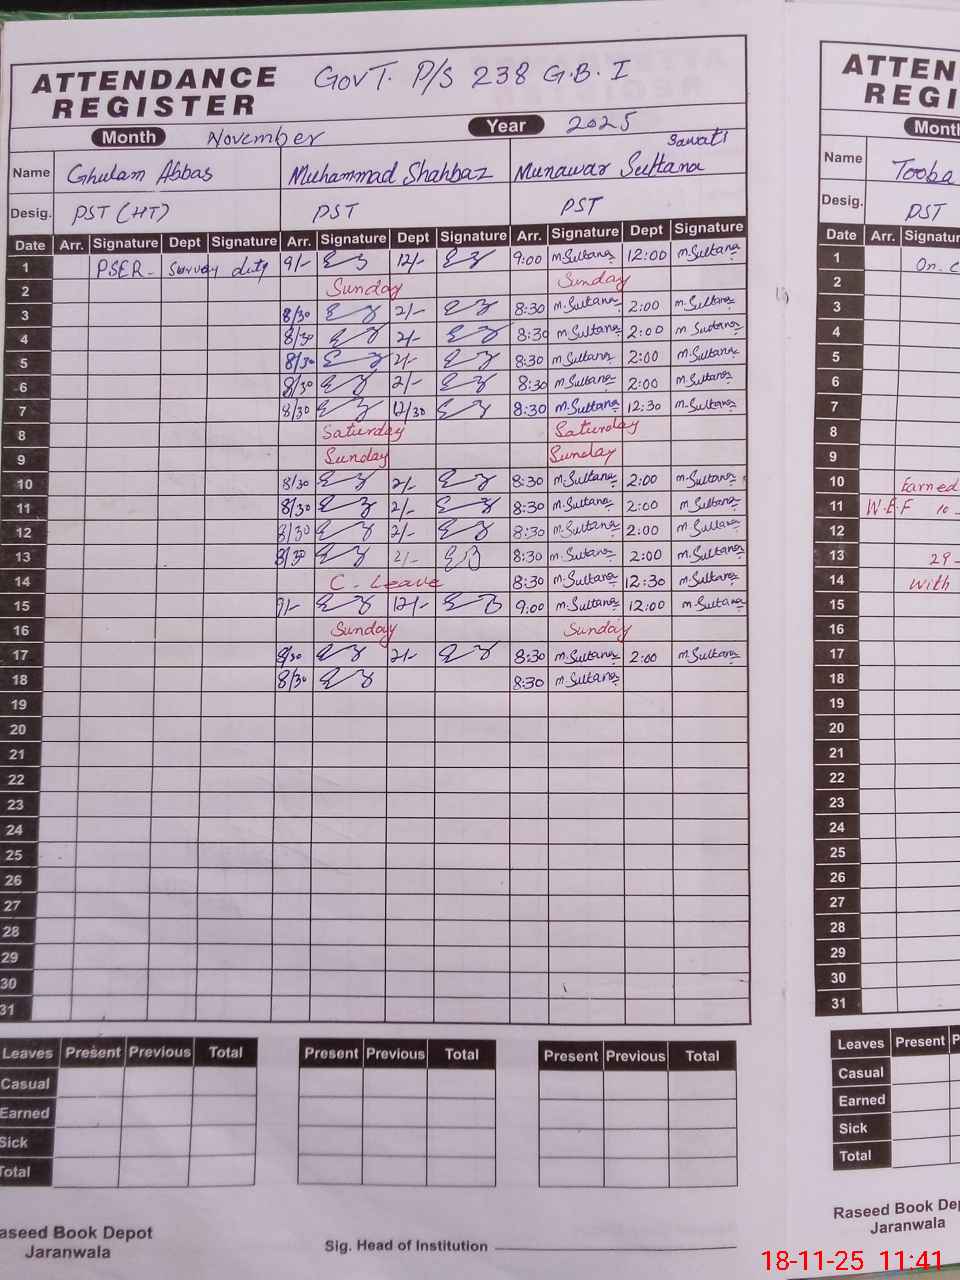 ATTENDANCE REGISTER GOVT. P/S 238 G.B. I
Month November Year 2025
Name Ghulam Abbas Muhammad Shahbaz Munawar Sultana
Desig. PST (HT) PST PST
Date Arr. Signature Dept Signature Arr. Signature Dept Signature Arr. Signature Dept Signature
1 PSER - Survey duty 9/- 12/- 9:00 m.Sultana 12:00 m.Sultana
2 Sunday Sunday
3 8/30 2/- 8:30 m.Sultana 2:00 m.Sultana
4 8/30 2/- 8:30 m.Sultana 2:00 m.Sultana
5 8/30 2/- 8:30 m.Sultana 2:00 m.Sultana
6 8/30 2/- 8:30 m.Sultana 2:00 m.Sultana
7 8/30 12/30 8:30 m.Sultana 12:30 m.Sultana
8 Saturday Saturday
9 Sunday Sunday
10 8/30 2/- 8:30 m.Sultana 2:00 m.Sultana
11 8/30 2/- 8:30 m.Sultana 2:00 m.Sultana
12 8/30 2/- 8:30 m.Sultana 2:00 m.Sultana
13 8/30 2/- 8:30 m.Sultana 2:00 m.Sultana
14 C. Leave 8:30 m.Sultana 12:30 m.Sultana
15 9/- 12/- 9:00 m.Sultana 12:00 m.Sultana
16 Sunday Sunday
17 8/30 2/- 8:30 m.Sultana 2:00 m.Sultana
18 8/30 8:30 m.Sultana
19
20
21
22
23
24
25
26
27
28
29
30
31
Leaves Present Previous Total Present Previous Total Present Previous Total
Casual
Earned
Sick
Total
Raseed Book Depot
Jaranwala
Sig. Head of Institution
ATTEN
REGI
Month
Name Tooba
Desig. PST
Date Arr. Signatur
1 On.
2
3
4
5
6
7
8
9
10 Earned
11 W.E.F 10
12
13 29-
14 with
15
16
17
18
19
20
21
22
23
24
25
26
27
28
29
30
31
Leaves Present P
Casual
Earned
Sick
Total
Raseed Book Dep
Jaranwala
18-11-25 11:41